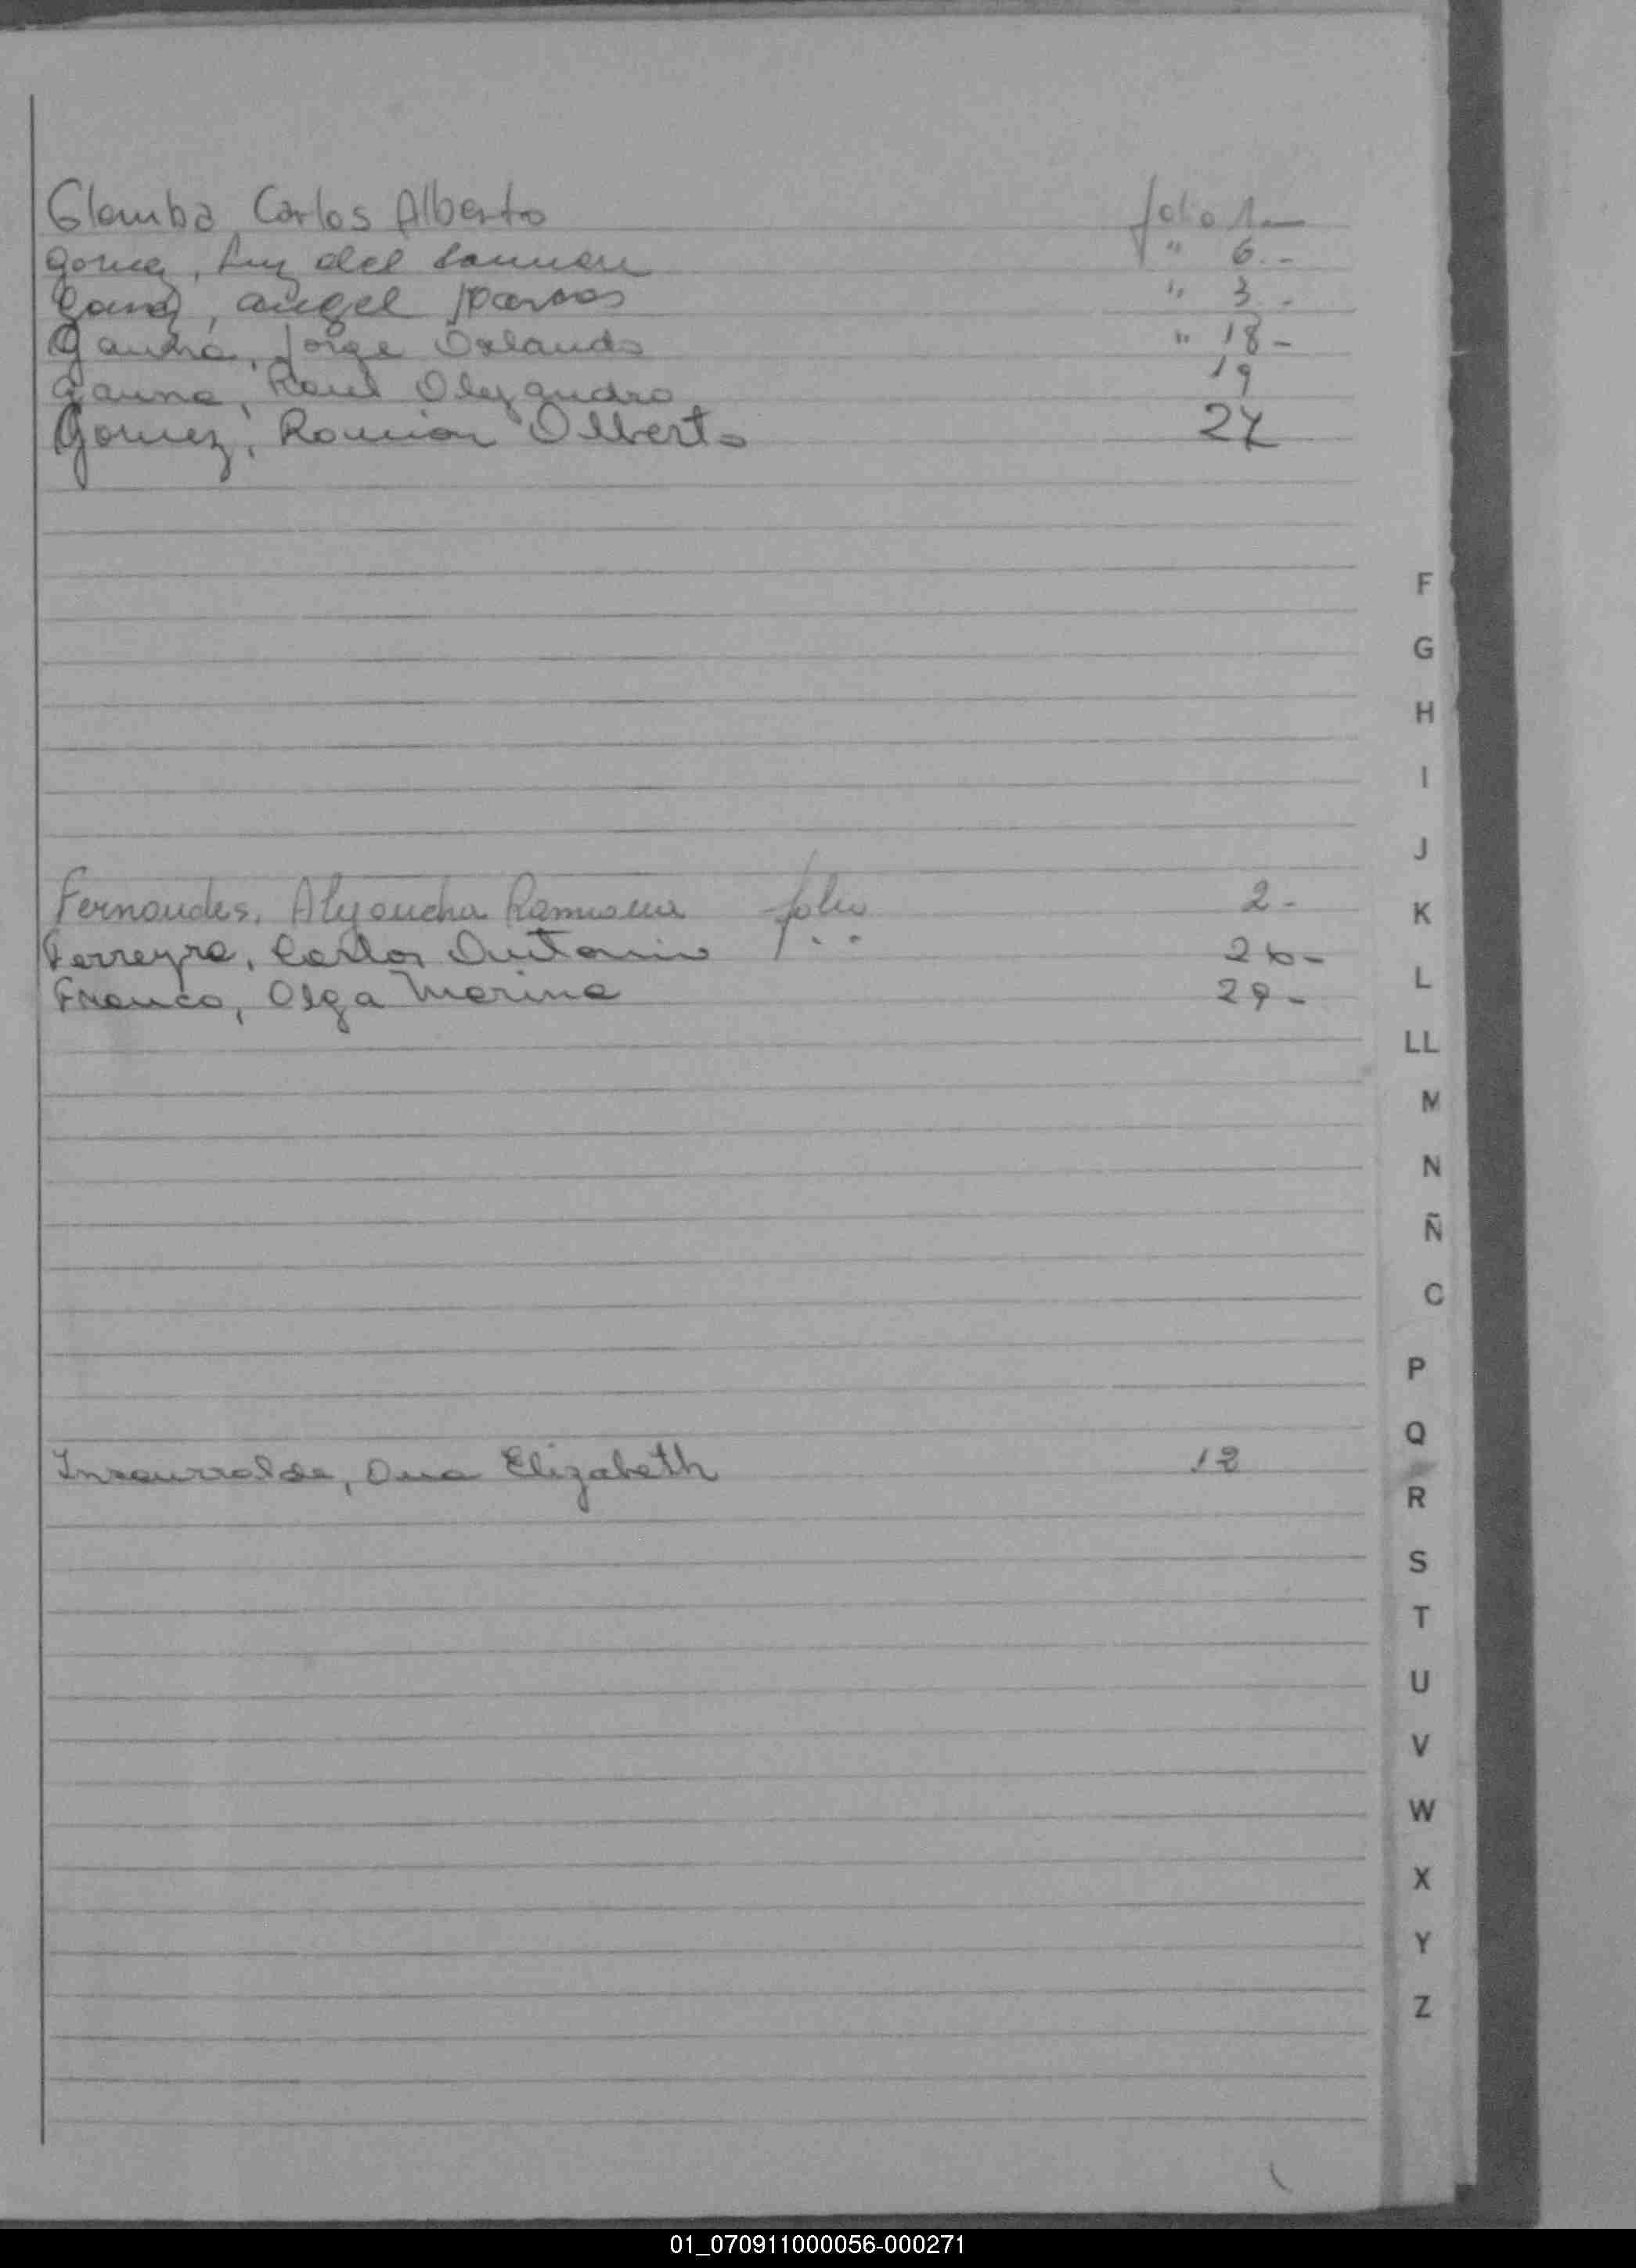 Glomba, Carlos Alberto folio 1
Gomez, Luz del Carmen " 6.-
Gomez, angel " 3.-
Gauna, Jorge Orlando " 18-
Gauna, Raul Alejandro 19
Gomez, Ramon Alberto 27
Fernandes, Alejandra Ramona folio 2-
Ferreyra, Carlos Antonio " 26-
Franco, Olga Marina 29-
Insaurralde, Ana Elizabeth 12
F
G
H
I
J
K
L
LL
M
N
Ñ
O
P
Q
R
S
T
U
V
W
X
Y
Z
01_070911000056-000271